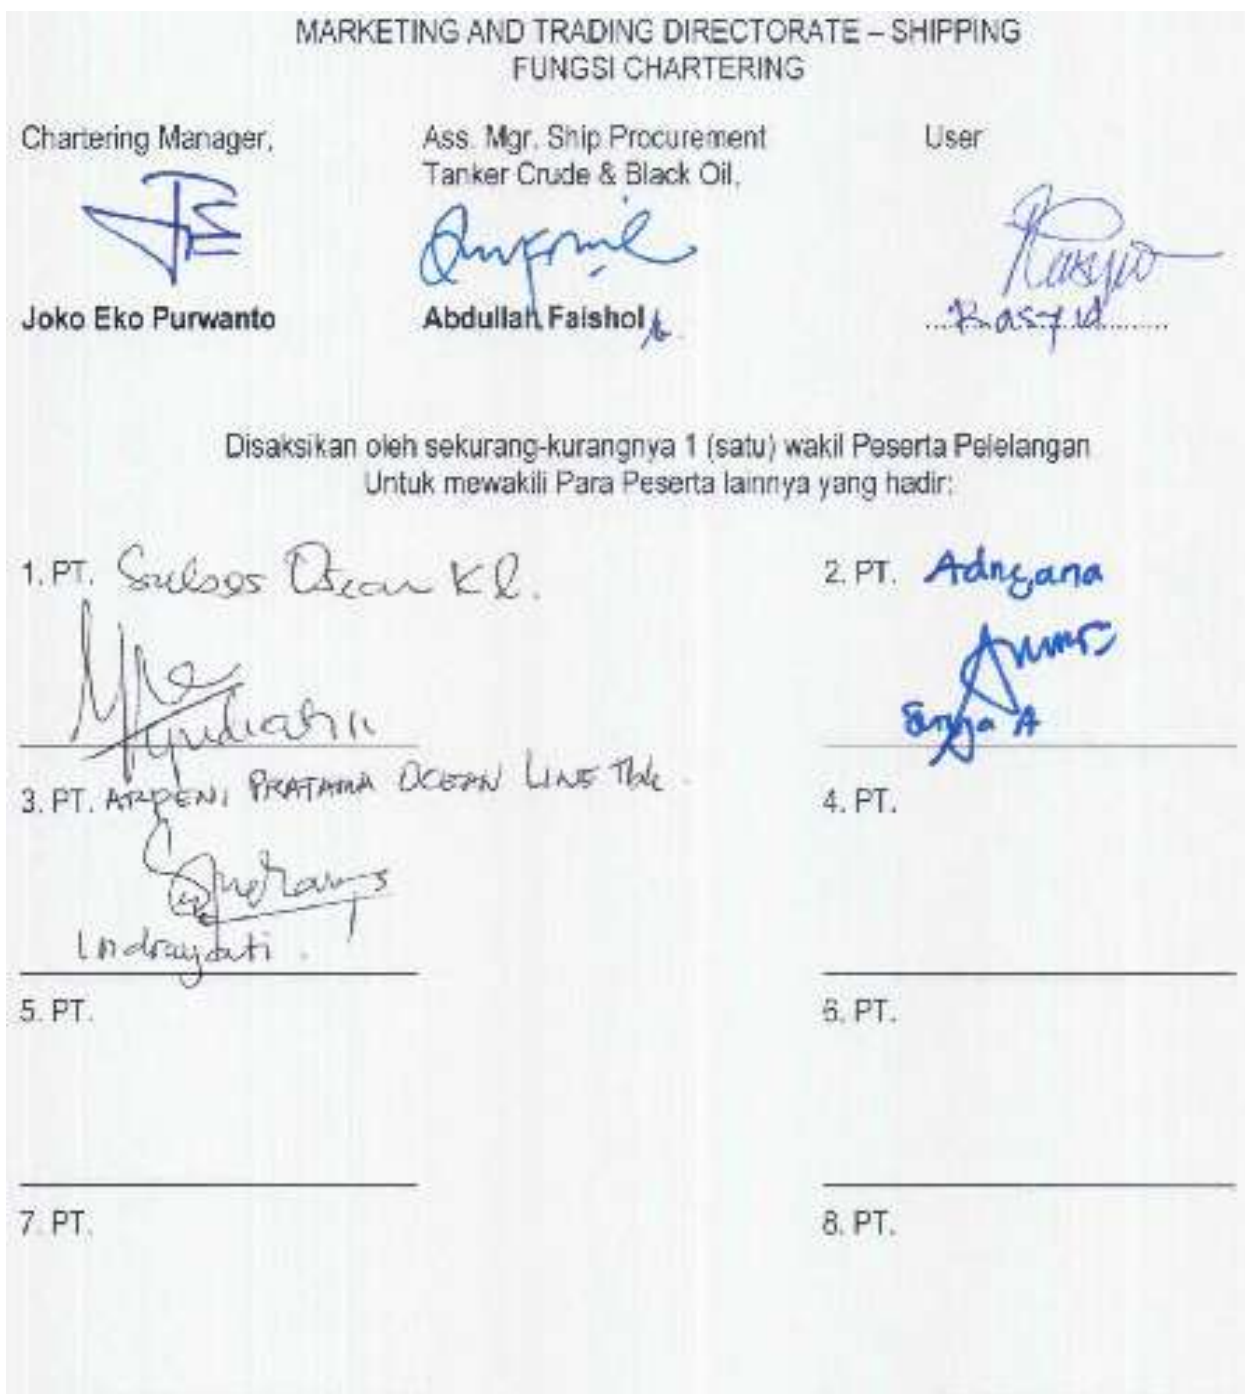 MARKETING AND TRADING DIRECTORATE – SHIPPING
FUNGSI CHARTERING
Chartering Manager,
Ass. Mgr. Ship Procurement
Tanker Crude & Black Oil,
User
Joko Eko Purwanto
Abdullah Faishol
Rasyid
Disaksikan oleh sekurang-kurangnya 1 (satu) wakil Peserta Pelelangan
Untuk mewakili Para Peserta lainnya yang hadir:
1. PT. Sukses Ocean Kl.
2. PT. Adnyana
Surya A
3. PT. ARPENI PRATAMA OCEAN LINE Tbk.
4. PT.
Indrayati.
5. PT.
6. PT.
7. PT.
8. PT.